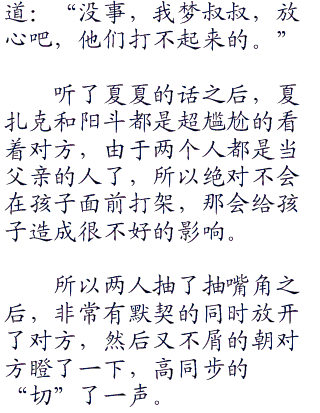 道：“没事，我梦叔叔，放
心吧，他们打不起来的。”
听了夏夏的话之后，夏
扎克和阳斗都是超尴尬的看
着对方，由于两个人都是当
父亲的人了，所以绝对不会
在孩子面前打架，那会给孩
子造成很不好的影响。
所以两人抽了抽嘴角之
后，非常有默契的同时放开
了对方，然后又不屑的朝对
方瞪了一下，高同步的
“切”了一声。